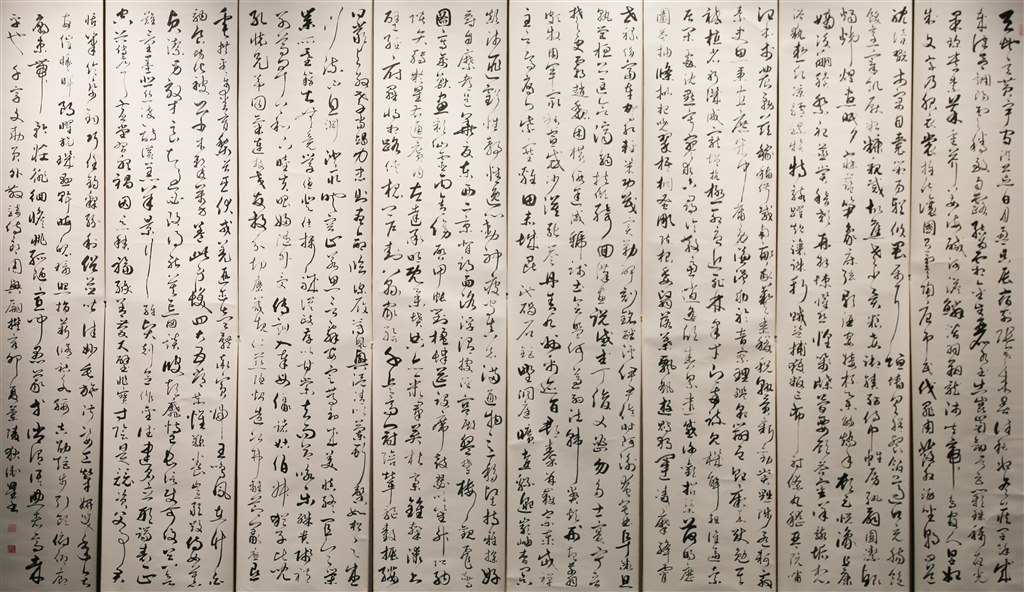 天地玄黃宇宙洪荒日月盈昃辰宿列張寒來暑往秋收冬藏閏餘成
歲律呂調陽雲騰致雨露結為霜金生麗水玉出崑岡劍號巨闕珠稱夜光
果珍李柰菜重芥薑海鹹河淡鱗潛羽翔龍師火帝鳥官人皇始
制文字乃服衣裳推位讓國有虞陶唐弔民伐罪周發殷湯坐朝問道
耽讀翫市寓目囊箱易輶攸畏屬耳垣牆具膳餐飯適口充腸飽
飫烹宰飢厭糟糠親戚故舊老少異糧妾御績紡侍巾帷房紈扇圓潔銀
燭煒煌晝眠夕寐藍筍象床弦歌酒宴接杯舉觴矯手頓足悅豫且康
嫡後嗣續祭祀烝嘗稽顙再拜悚懼恐惶箋牒簡要顧答審詳骸垢想
浴執熱願涼驢騾犢特駭躍超驤誅斬賊盜捕獲叛亡布射僚丸嵇琴阮嘯
治本於農務茲稼穡俶載南畝我藝黍稷稅熟貢新勸賞黜陟孟軻敦
素史魚秉直庶幾中庸勞謙謹敕聆音察理鑒貌辨色貽厥嘉猷勉其
祗植省躬譏誡寵增抗極殆辱近恥林皋幸即兩疏見機解組誰逼索
居閒處沉默寂寥求古尋論散慮逍遙欣奏累遣慼謝歡招渠荷的歷
園莽抽條枇杷晚翠梧桐早凋陳根委翳落葉飄颻遊鵾獨運凌摩絳霄
世祿侈富車駕肥輕策功茂實勒碑刻銘磻溪伊尹佐時阿衡奄宅曲阜微旦
孰營桓公匡合濟弱扶傾綺迴漢惠說感武丁俊乂密勿多士寔寧晉
楚更霸趙魏困橫假途滅虢踐土會盟何遵約法韓弊煩刑起翦
頗牧用軍最精宣威沙漠馳譽丹青九州禹跡百郡秦并嶽宗泰岱禪
主云亭雁門紫塞雞田赤城昆池碣石鉅野洞庭曠遠綿邈巖岫杳冥
顛沛匪虧性靜情逸心動神疲守真志滿逐物意移堅持雅操好
爵自縻都邑華夏東西二京背邙面洛浮渭據涇宮殿盤鬱樓觀飛驚
圖寫禽獸畫彩仙靈丙舍傍啟甲帳對楹肆筵設席鼓瑟吹笙升階納
陛弁轉疑星右通廣內左達承明既集墳典亦聚群英杜稿鍾隸漆書
壁經府羅將相路俠槐卿戶封八縣家給千兵高冠陪輦驅轂振纓
曰嚴與敬孝當竭力忠則盡命臨深履薄夙興溫凊似蘭斯馨如松之盛
川流不息淵澄取映容止若思言辭安定篤初誠美慎終宜令榮
業所基籍甚無竟學優登仕攝職從政存以甘棠去而益詠樂殊貴賤禮
別尊卑上和下睦夫唱婦隨外受傅訓入奉母儀諸姑伯叔猶子比兒
孔懷兄弟同氣連枝交友投分切磨箴規仁慈隱惻造次弗離節義廉退
垂拱平章愛育黎首臣伏戎羌遐邇壹體率賓歸王鳴鳳在竹白
駒食場化被草木賴及萬方蓋此身髮四大五常恭惟鞠養豈敢毀傷女慕
貞潔男效才良知過必改得能莫忘罔談彼短靡恃己長信使可覆器欲
難量墨悲絲染詩讚羔羊景行維賢克念作聖德建名立形端表正
空谷傳聲虛堂習聽禍因惡積福緣善慶尺璧非寶寸陰是競資父事君
恬筆倫紙鈞巧任釣釋紛利俗並皆佳妙毛施淑姿工顰妍笑年矢
每催曦暉朗曜璇璣懸斡晦魄環照指薪修祜永綏吉劭矩步引領俯仰廊
廟束帶矜莊徘徊瞻眺孤陋寡聞愚蒙等誚謂語助者焉哉
乎也 千字文勅員外散騎侍郎周興嗣撰